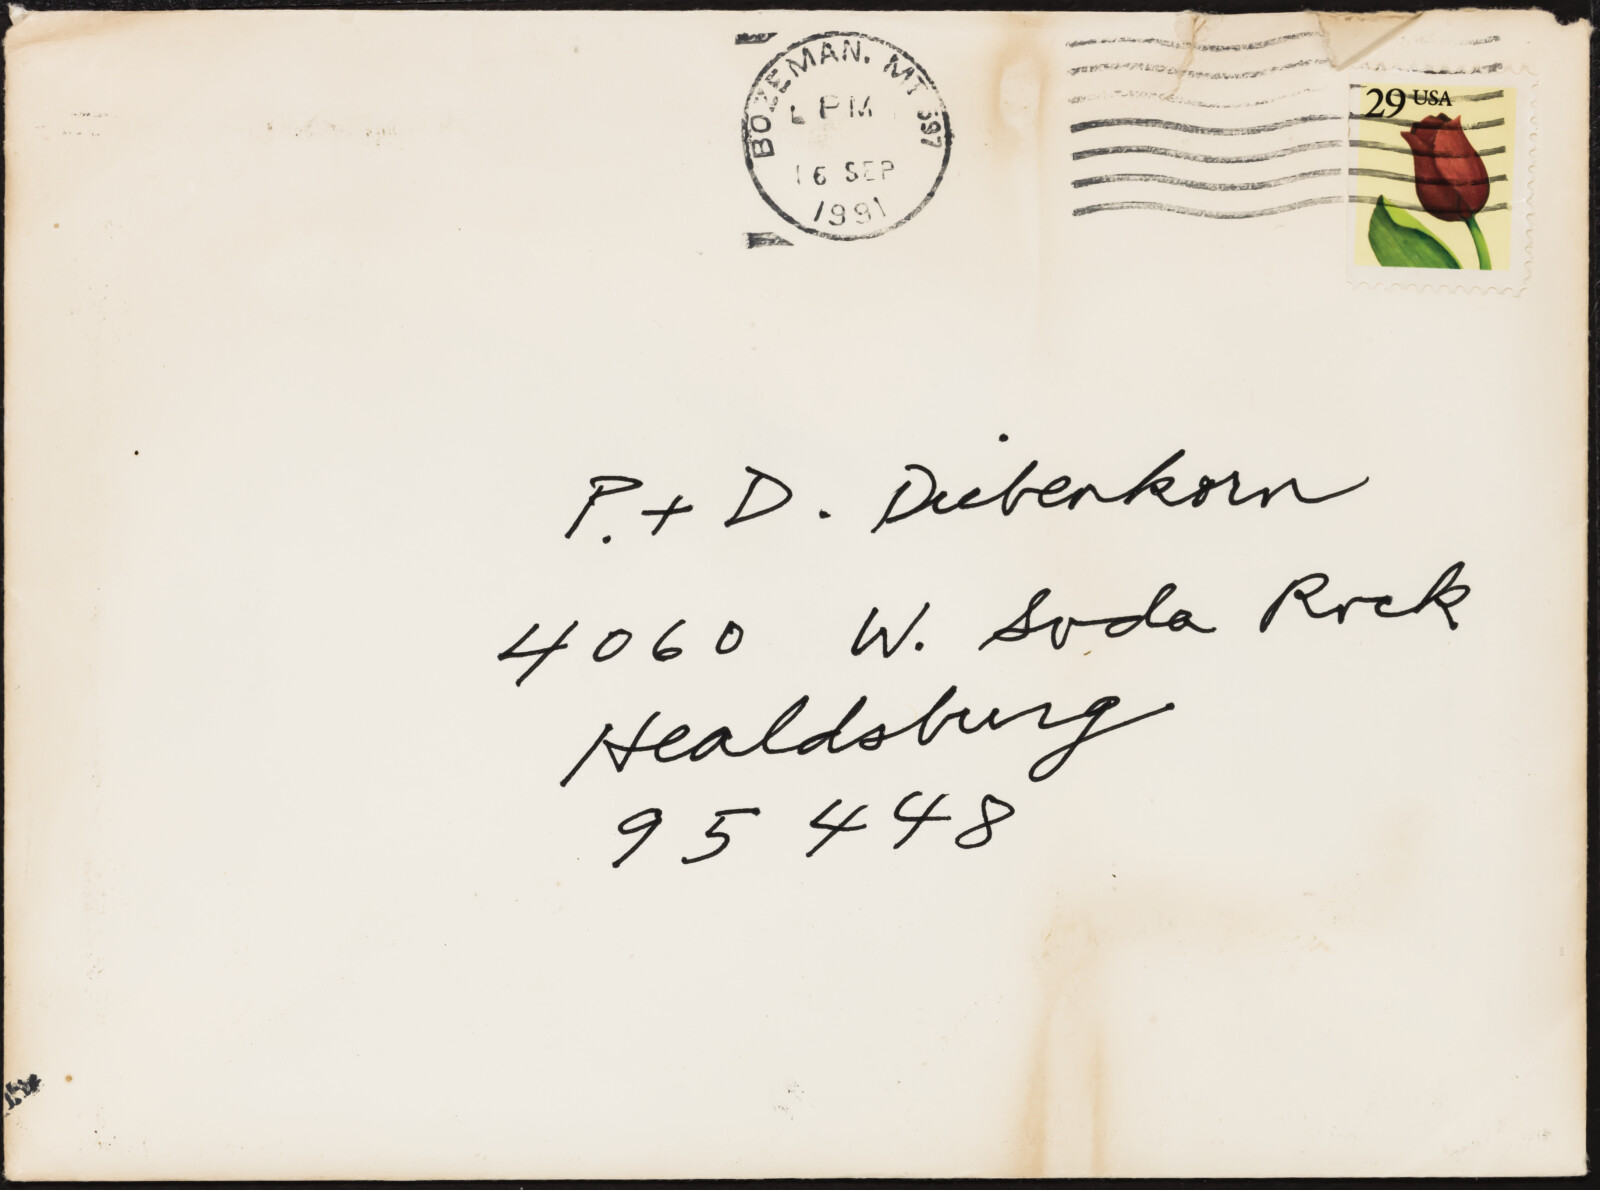 BOZEMAN, MT 597
PM
16 SEP
1991
29 USA
P. + D. Diebenkorn
4060 W. Soda Rock
Healdsburg
95448